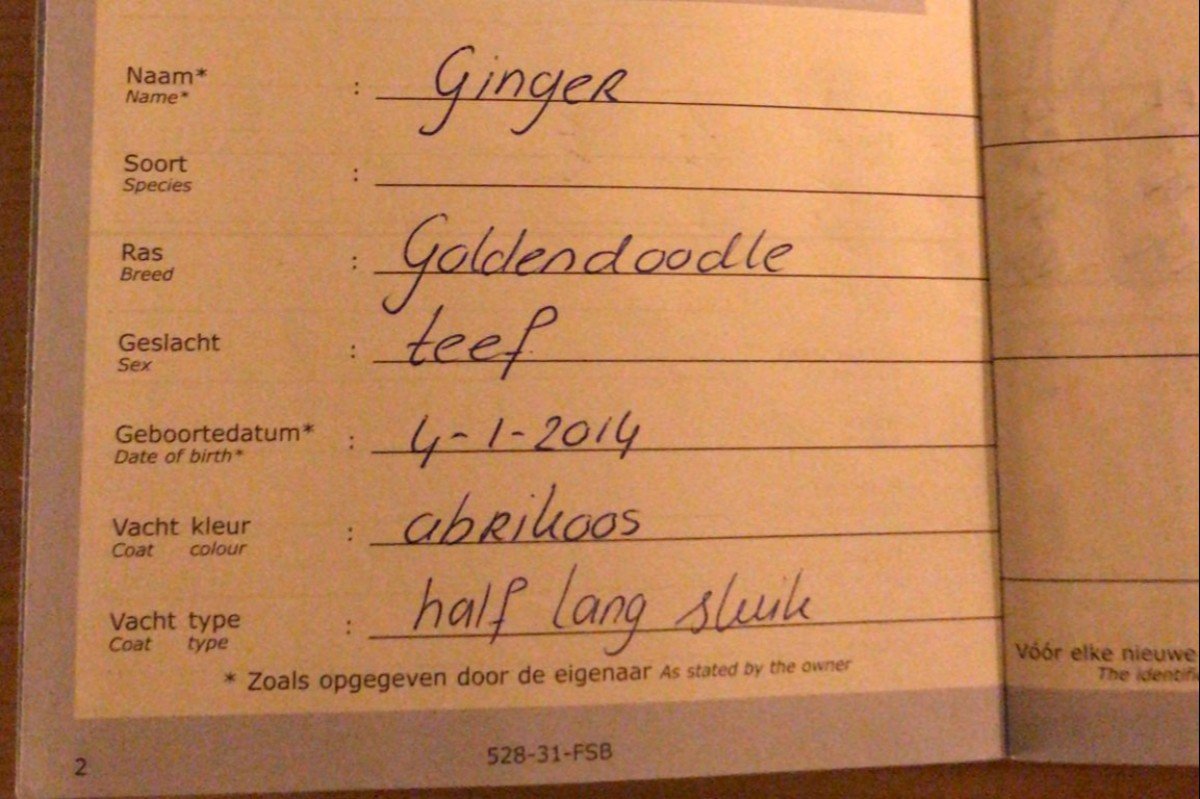 Naam* : Ginger
Name*
Soort :
Species
Ras : Goldendoodle
Breed
Geslacht : teef
Sex
Geboortedatum* : 4-1-2014
Date of birth*
Vacht kleur : abrikoos
Coat colour
Vacht type : half lang sluik
Coat type
* Zoals opgegeven door de eigenaar As stated by the owner
Vóór elke nieuwe
The
2
528-31-FSB